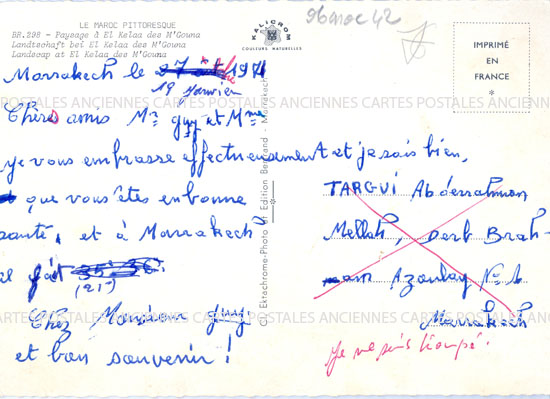 LE MAROC PITTORESQUE
BR.298 - Paysage à El Kelaa des M'Gouna
Landschaft bei El Kelaa des M'Gouna
Landscap at El Kelaa des M'Gouna
KALICROM
COULEURS NATURELLES
96 maroc 42
IMPRIMÉ
EN
FRANCE
*
Marrakech le 27 1971
19 Janvier
Chères amis Mr guy et Mme
je vous embrasse affectueusement et je sais bien,
que vous êtes en bonne
santé, et à Marrakech
il fait 35
(21°)
Chez Monsieur guy
et bon souvenir!
TARGUI Abderrahman
Mellah, Derb Brah-
-am Azoulay N° 1
Marrakech
Je me suis trompé!
Ektachrome-Photo et Edition Bertrand - Marrakech
CARTES POSTALES ANCIENNES CARTES POSTALES ANCIENNES CARTES POSTALES
CARTES POSTALES ANCIENNES CARTES POSTALES ANCIENNES CARTES POSTALES